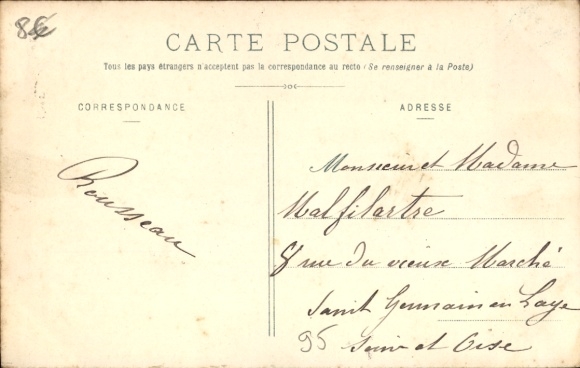 86
CARTE POSTALE
Tous les pays étrangers n'acceptent pas la correspondance au recto (Se renseigner à la Poste)
CORRESPONDANCE
ADRESSE
Rousseau
Monsieur et Madame
Malfilartre
8 rue du vieux Marché
Saint Germain en Laye
95
Seine et Oise